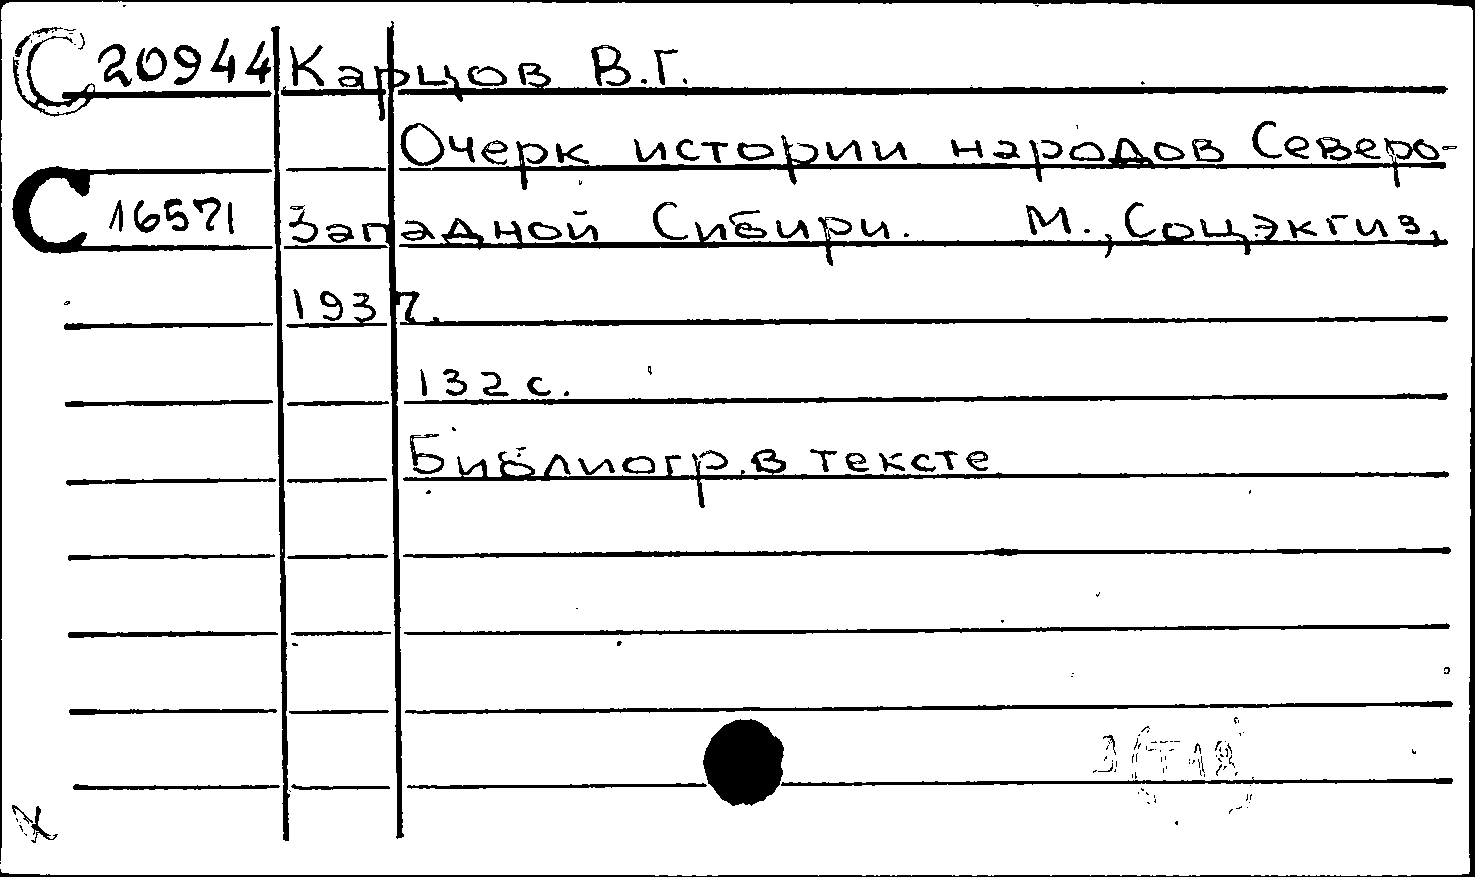 С 20944 Карцов В.Г.
Очерк истории народов Северо-
С 16571 Западной Сибири. М., Соцэкгиз,
1937.
132 с.
Библиогр. в тексте